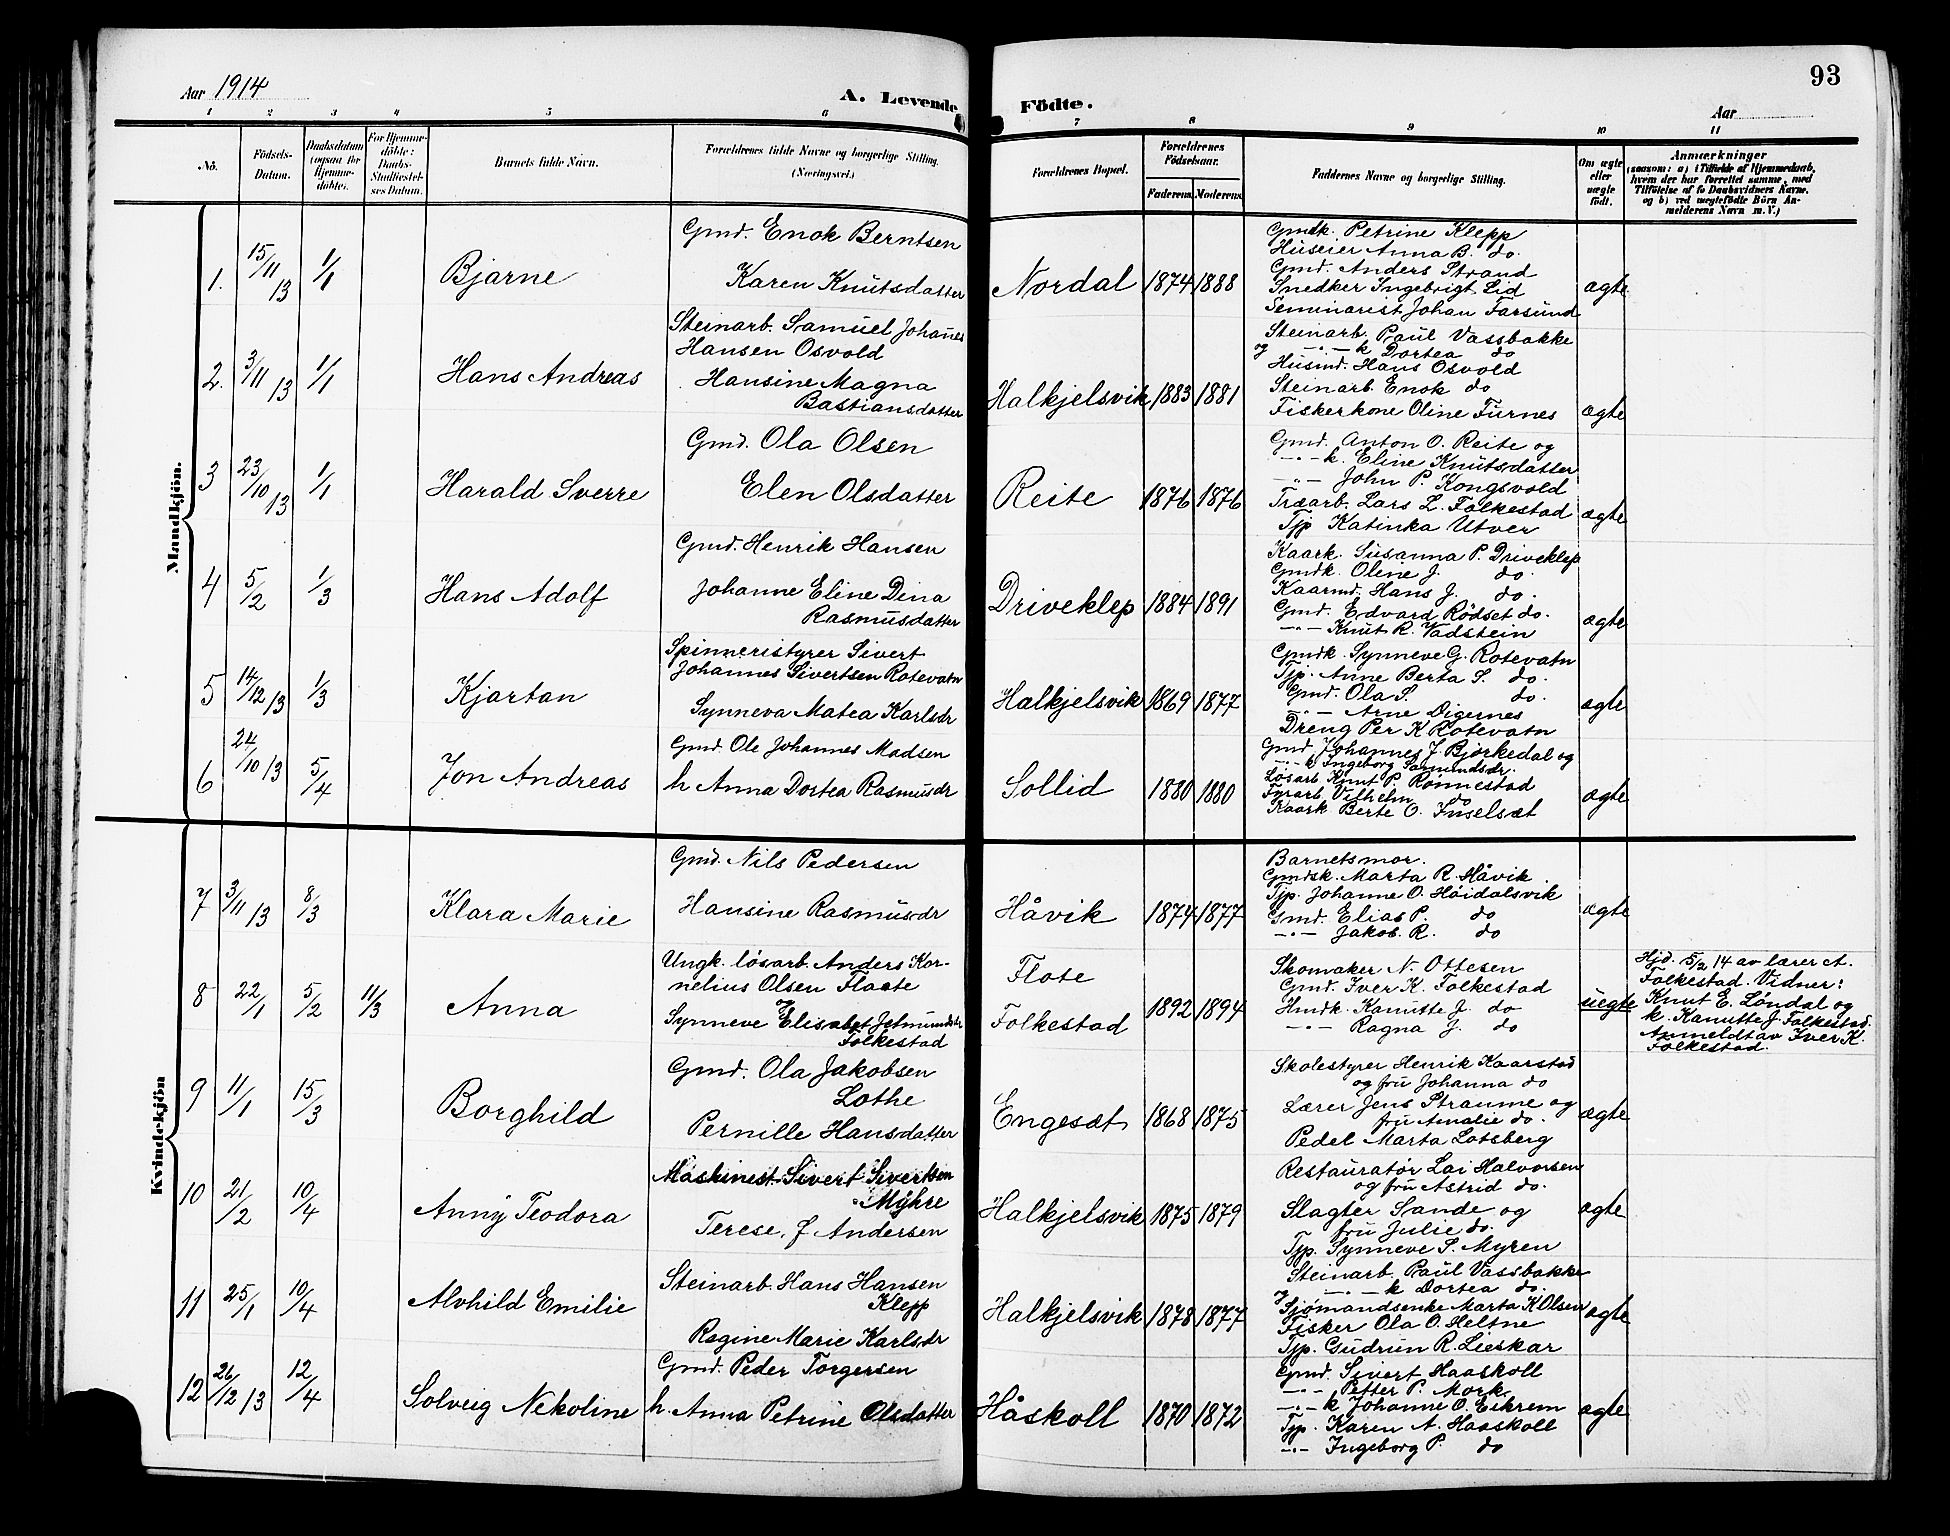 Aar 1914
A. Levende
Födte.
Aar
93
1 2 3 4 5 6 7 8 9 10 11
No.
Födsels-
Datum.
Daabsdatum
(ogsaa for
Hjemme-
döbte).
For Hjemme-
döbte:
Daabs-
Stadfæstel-
ses Datum.
Barnets fulde Navn.
Forældrenes fulde Navne og borgerlige Stilling.
(Næringsvei.)
Forældrenes Bopæl.
Forældrenes
Födselsaar.
Faderens. Moderens.
Faddernes Navne og borgerlige Stilling.
Om ægte
eller
uægte
födt.
Anmærkninger
(saasom: a) i Tilfælde af Hjemmedaab,
hvem der har forrettet samme, med
Tilföielse af to Daabsvidners Navne,
og b) ved uægtefödte Börn An-
melderens Navn m. V.)
Mandkjön.
1. 15/11 13 1/1 Bjarne
Gmd. Enok Berntsen
Karen Knutsdatter
Nordal 1874 1888
Gmdk. Petrine Klepp
Huseier Anna B. do.
Gmd. Anders Strand
Snedker Ingebrigt Lid
Seminarist Johan Farsund
ægte
2. 3/11 13 1/1 Hans Andreas
Steinarb. Samuel Johanes
Hansen Osvold
Hansine Magna
Bastiansdatter
Halkjelsvik 1883 1881
Steinarb. Paul Vassbakke
og -"- k Dortea do
Husmd. Hans Osvold
Steinarb. Enok do
Fiskerkone Oline Furnes
ægte
3 23/10 13 1/1 Harald Sverre
Gmd. Ola Olsen
Elen Olsdatter
Reite 1876 1876
Gmd. Anton O. Reite og
-"- k. Eline Knutsdatter
-"- John P. Kongsvold
Træarb. Lars L. Folkestad
Tjp Katinka Utver
ægte
4 5/2 1/3 Hans Adolf
Gmd. Henrik Hansen
Johanne Eline Dina
Rasmusdatter
Driveklep 1884 1891
Kaark. Susanna P. Driveklep
Gmdk. Oline J. do.
Kaarmd. Hans J. do.
Gmd. Edvard Rødset do.
-"- Knut R. Vadstein
ægte
5 14/12 13 1/3 Kjartan
Spinneristyrer Sivert
Johannes Sivertsen Rotevatn
Synneva Matea Karlsdr
Halkjelsvik 1869 1877
Gmdk. Synneve G. Rotevatn
Tjp. Anne Berta S. do.
Gmd. Ola S. do.
-"- Arne Digernes
Dreng Per K Rotevatn
ægte
6 24/10 13 5/4 Jon Andreas
Gmd. Ole Johannes Madsen
h Anna Dortea Rasmusdr
Sollid 1880 1880
Gmd. Johannes J. Bjørkedal og
-"- k Ingeborg Samundsdr.
Løsarb Knut P. Rønnestad
Fyrarb. Vilhelm do
Kaark Berte O. Inselsæt
ægte
Kvindekjön
7 3/11 13 8/3 Klara Marie
Gmd. Nils Pedersen
Hansine Rasmusdr
Håvik 1874 1877
Barnetsmor.
Gmdsk. Marta R. Håvik.
Tjp. Johanne O. Høidalsvik
Gmd. Elias P. do
-"- Jakob. R. do
ægte
8 22/1 5/2 11/3 Anna
Ungk. løsarb. Anders Kor-
nelius Olsen Flaate
Synneve Elisabet Jetmundsdr
Folkestad
Flote
Folkestad
1892 1894
Skomaker N. Ottesen
Gmd. Iver K. Folkestad
Hmdk. Kanutte J. do
-"- Ragna J. do
uegte
Hjd. 5/2 14 av lærer A.
Folkestad. Vidner:
Knut E. Løndal og
k. Kanutte J. Folkestad.
Anmeldt av Iver K.
Folkestad.
9 11/1 15/3 Borghild
Gmd. Ola Jakobsen
Lothe
Pernille Hansdatter
Engesæt 1868 1875
Skolestyrer Henrik Kaarstad
og fru Johanna do
Lærer Jens Straume og
fru Amalie do.
Pedel Marta Lotsberg
ægte
10 21/2 10/4 Anny Teodora
Maskinest. Sivert Sivertsen
Myhre
Terese. J Andersen
Halkjelsvik 1875 1879
Restauratør Lai Halvorsen
og fru Astrid do.
Slagter Sande og
fru Julie do.
Tjp. Synneve S. Myren
ægte
11 25/1 10/4 Alvhild Emilie
Steinarb. Hans Hansen
Klepp
Ragine Marie Karlsdr
Halkjelsvik 1878 1877
Steinarb. Paul Vassbakke
og -"- k Dortea do.
Sjømandsenke Marta K Olsen
Fisker Ola O. Heltne
Tjp. Gudrun R. Lieskar
ægte
12 26/12 13 12/4 Solveig Nekoline
Gmd. Peder Torgersen
h. Anna Petrine Olsdatter
Håskoll 1870 1872
Gmd. Sivert Haaskoll
-"- Petter P. Mork.
-"- k Johanne O. Eikrem
Tjp. Karen A. Haaskoll
-"- Ingeborg P. do
ægte